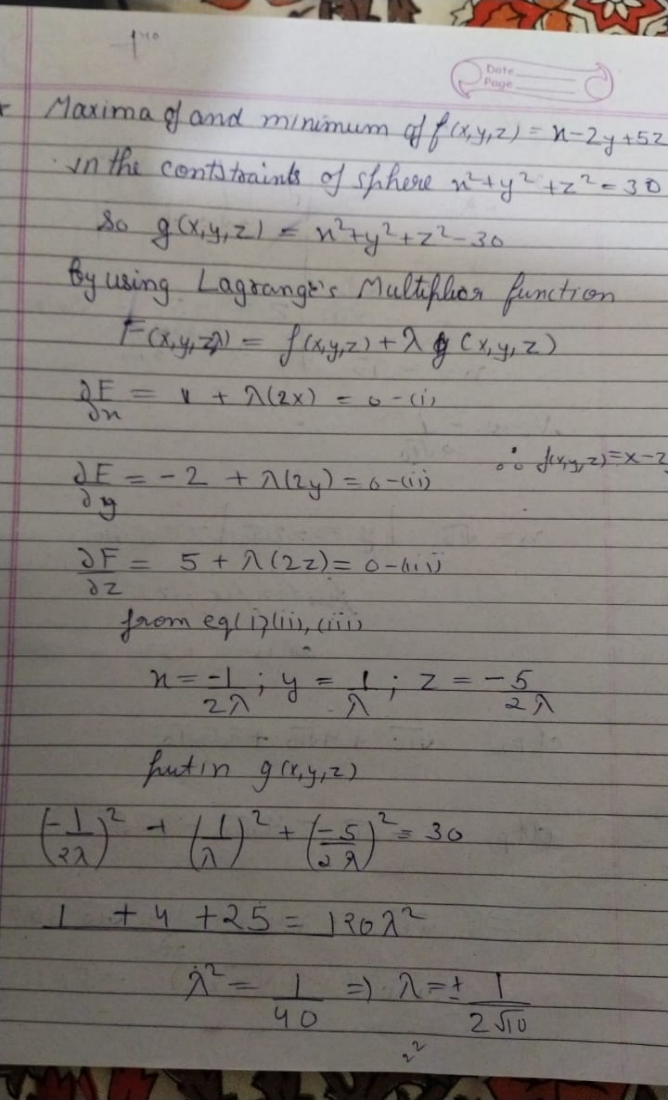 Date
Page
Maxima of and minimum of f(x,y,z) = x-2y+5z
in the contstraints of sphere x²+y²+z²=30
So g(x,y,z) = x²+y²+z²-30
By using Lagrange's Multiplier function
F(x,y,z,λ) = f(x,y,z)+λ g(x,y,z)
∂F/∂x = 1 + λ(2x) = 0-(i)
∴ f(x,y,z)=x-2
∂F/∂y = -2 + λ(2y)=0-(ii)
∂F/∂z = 5+λ(2z)=0-(iii)
from eq(i)(ii),(iii)
x = -1/2λ ; y = 1/λ ; z = -5/2λ
put in g(x,y,z)
(-1/2λ)² + (1/λ)² + (-5/2λ)² = 30
1 + 4 + 25 = 120λ²
λ² = 1/40 => λ = ± 1/2√10